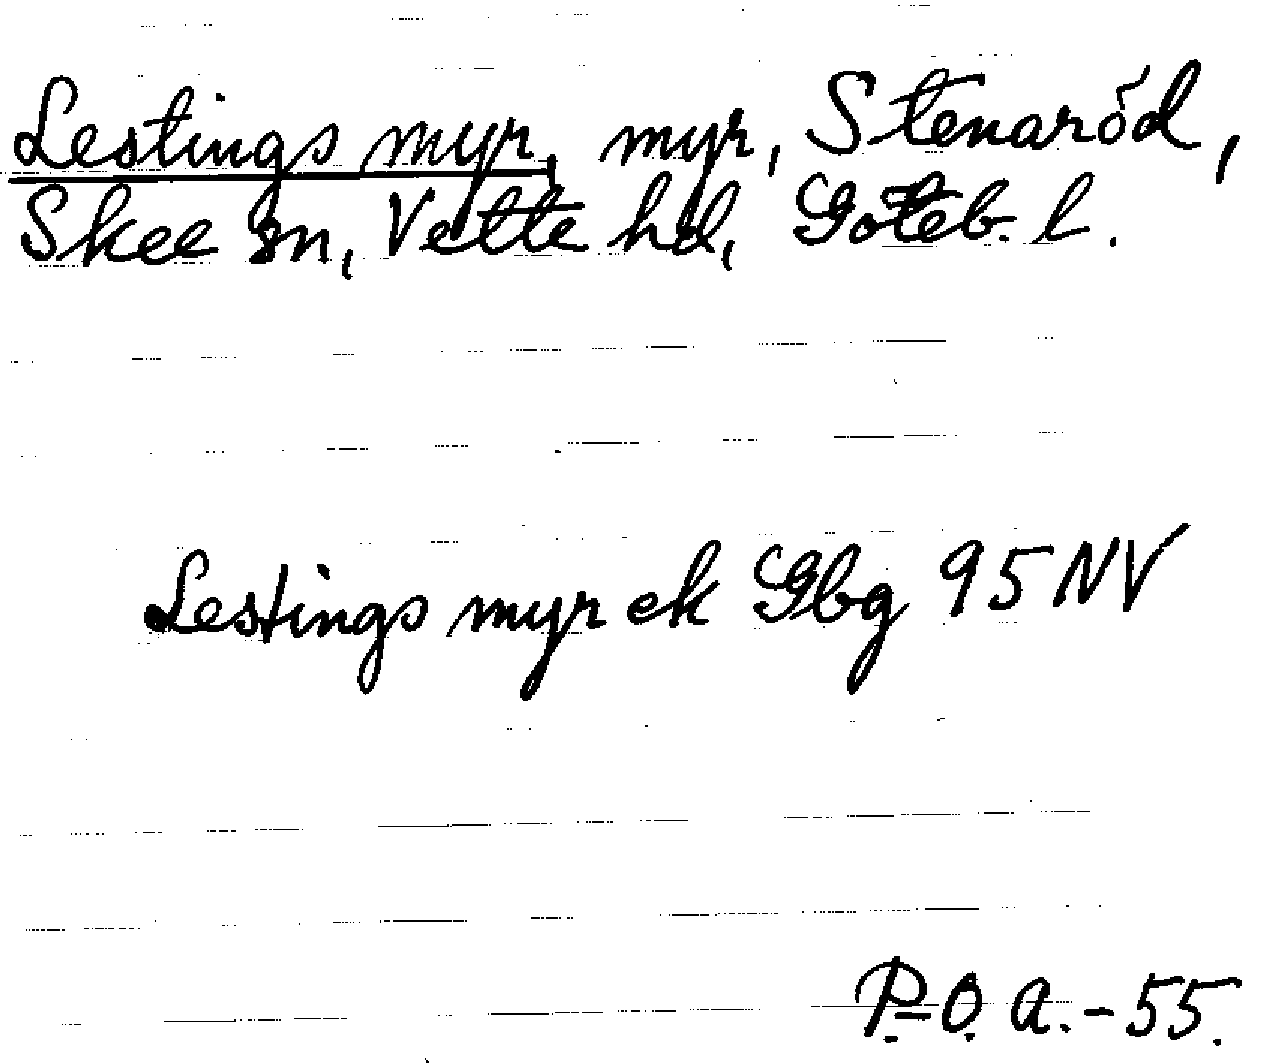 Lestings myr, myr, Stenaröd,
Skee sn, Vette hd, Göteb. l.
Lestings myr ek Gbg 95 NV
P.O.A.-55.